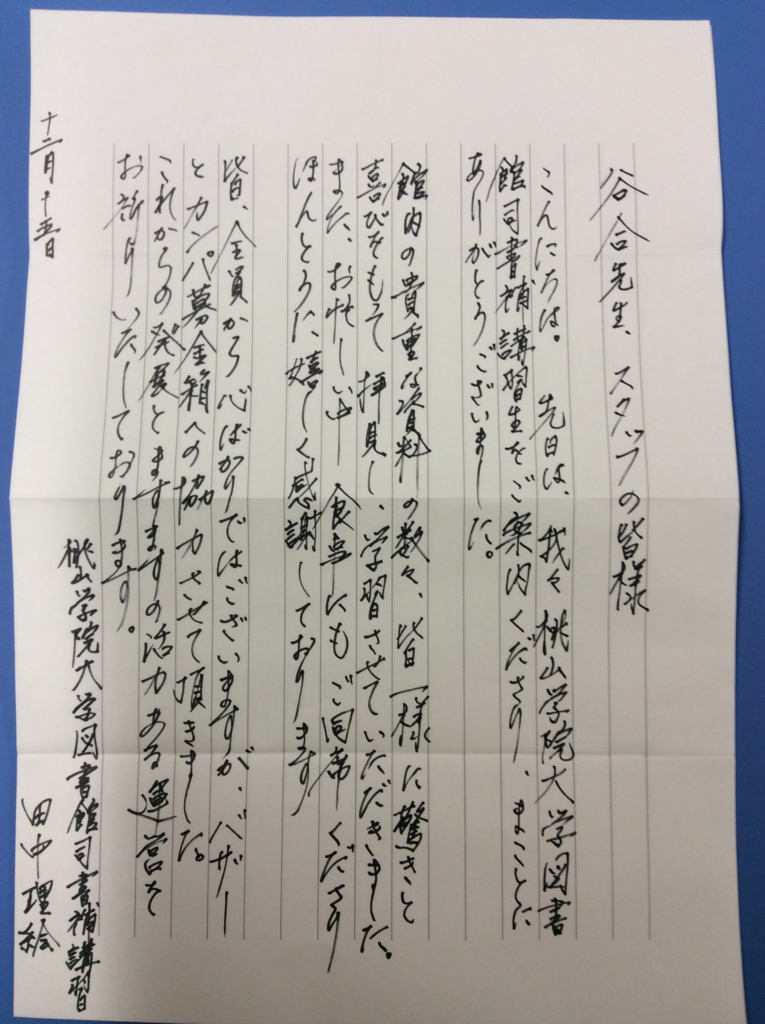 谷合先生、スタッフの皆様
こんにちは。 先日は、我々桃山学院大学図書
館司書補講習生をご案内くださり、まことに
ありがとうございました。
館内の貴重な資料の数々、皆一様に驚きと
喜びをもって拝見し、学習させていただきました。
また、お忙しい中食事にもご同席くださり
ほんとうに嬉しく感謝しております
皆、全員から心ばかりではございますが、バザー
とカンパ募金箱への協力させて頂きました。
これからの発展とますますの活力ある運営を
お祈りいたしております。
十二月十五日
桃山学院大学図書館司書補講習
田中理絵